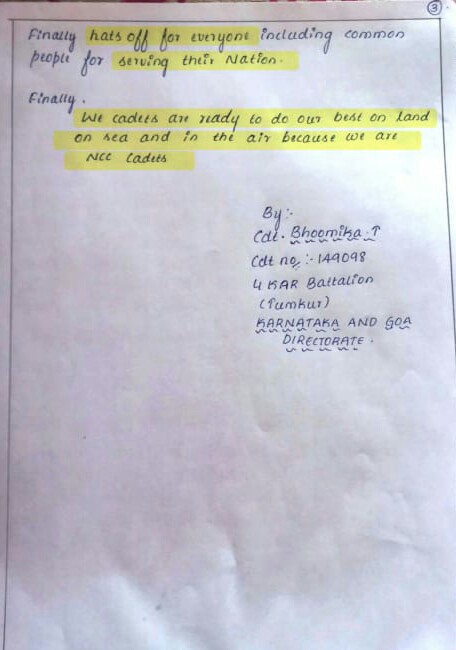 3
Finally hats off for everyone including common
people for serving their Nation.
Finally.
We cadets are ready to do our best on land
on sea and in the air because we are
NCC Cadets
By:-
Cdt. Bhoomika.T
Cdt no:-149098
4 KAR Battalion
(Tumkur)
KARNATAKA AND GOA
DIRECTORATE.